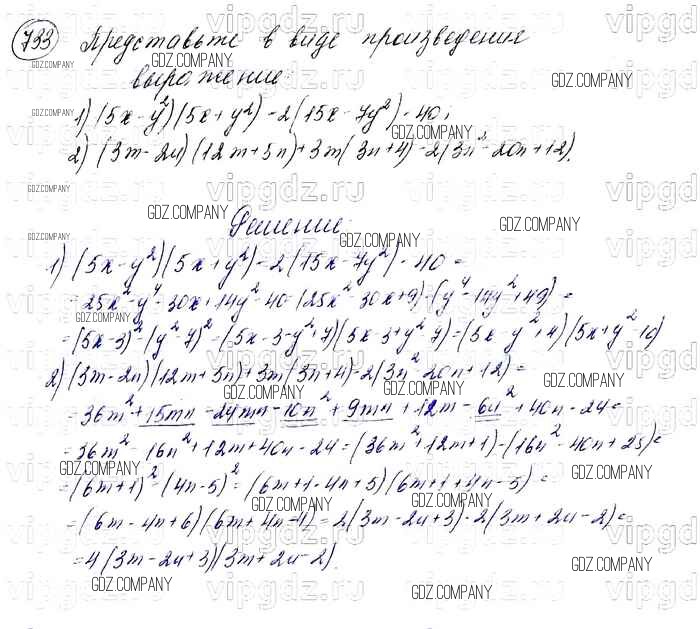 733 Представьте в виде произведения
выражение:
1) (5x - y²)(5x + y²) - 2(15x - 7y²) - 40;
2) (3m - 2n)(12m + 5n) + 3m(3n + 4) - 2(3n² - 20n + 12).
Решение:
1) (5x - y²)(5x + y²) - 2(15x - 7y²) - 40 =
= 25x² - y⁴ - 30x + 14y² - 40 = (25x² - 30x + 9) - (y⁴ - 14y² + 49) =
= (5x - 3)² - (y² - 7)² = (5x - 3 - y² + 7)(5x - 3 + y² - 7) = (5x - y² + 4)(5x + y² - 10)
2) (3m - 2n)(12m + 5n) + 3m(3n + 4) - 2(3n² - 20n + 12) =
= 36m² + 15mn - 24mn - 10n² + 9mn + 12m - 6n² + 40n - 24 =
= 36m² - 16n² + 12m + 40n - 24 = (36m² + 12m + 1) - (16n² - 40n + 25) =
= (6m + 1)² - (4n - 5)² = (6m + 1 - 4n + 5)(6m + 1 + 4n - 5) =
= (6m - 4n + 6)(6m + 4n - 4) = 2(3m - 2n + 3) · 2(3m + 2n - 2) =
= 4(3m - 2n + 3)(3m + 2n - 2).